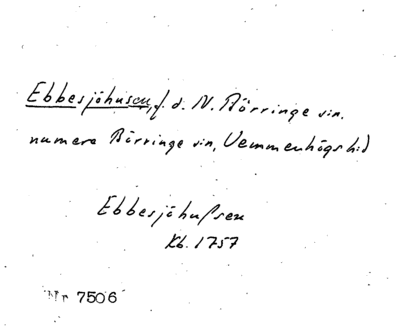 Ebbesjöhusen, f. d. N. Börringe sn.
numera Börringe sn, Vemmenhögs hd
Ebbesjöhusen
Kb. 1757
Nr 7506